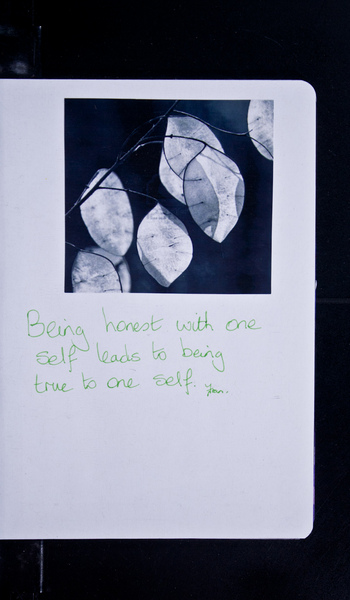 Being honest with one
self leads to being
true to one self.